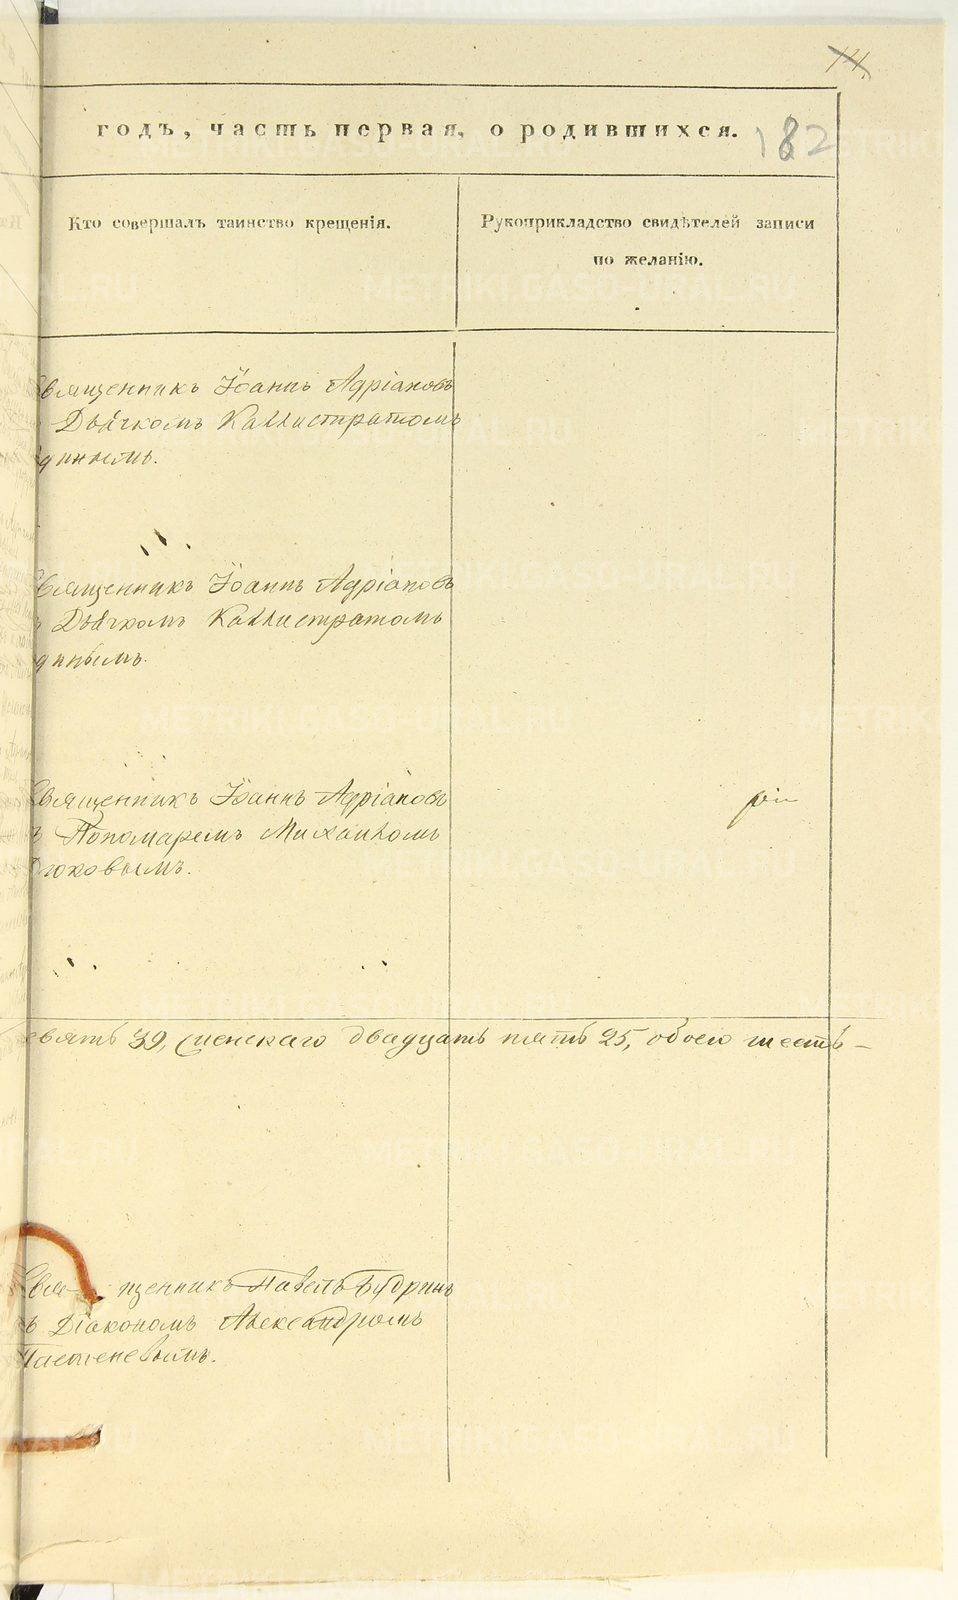 14.
годъ, часть первая, о родившихся.
182
Кто совершалъ таинство крещенія.
Рукоприкладство свидѣтелей записи
по желанію.
Священникъ Іоаннъ Адріановъ
Дьячкомъ Каллистратомъ
Священникъ Іоаннъ Адріановъ
Дьячкомъ Каллистратомъ
Священникъ Іоаннъ Адріановъ
съ Пономаремъ Михаиломъ
евять 39, женскаго двадцать пять 25, обоего шесть-
Священникъ Павелъ Будринъ
съ Діакономъ Александромъ
METRIKI.GASO-URAL.RU